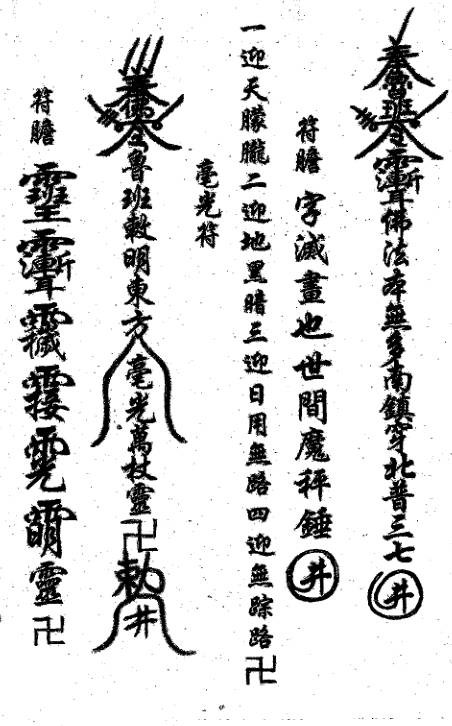 奉魯班令
佛法本無多南鎮穿北普三七井
符膽 字滅畫也世間魔秤錘井
一迎天朦朧二迎地黑暗三迎日月無路四迎無踪路卍
毫光符
奉佛令魯班敕明東方毫光萬杖靈卍勅井
符膽 靈卍